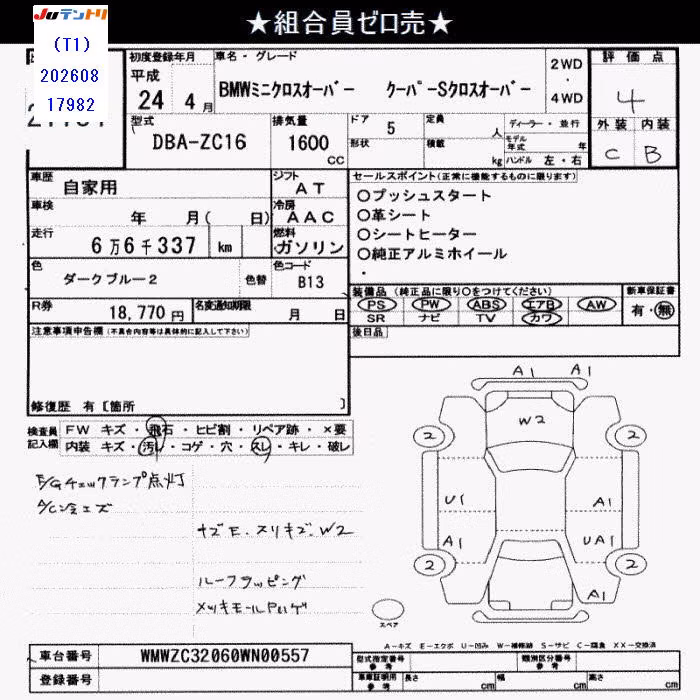 ★組合員ゼロ売★
Juテントリ
(T1)
202608
17982
初度登録年月
平成
24 4 月
車名・グレード
BMWミニクロスオーバー クーパーSクロスオーバー
2WD
・
4WD
評 価 点
4
外装 内装
C B
型式
DBA-ZC16
排気量
1600
cc
ドア
5
定員
人
形状
積載
kg
ディーラー・並行
モデル年式 年
ハンドル 左・右
車歴
自家用
シフト
AT
車検
年 月( 日)
冷房
AAC
走行
6万6千337 km
燃料
ガソリン
色
ダークブルー2
色替
色コード
B13
R券
18,770 円
名変通知期限
月 日
セールスポイント(正常に機能するものに限ります)
○プッシュスタート
○革シート
○シートヒーター
○純正アルミホイール
・
装備品 (純正品に限り○をつけてください)
PS PW ABS エアB AW
SR ナビ TV カワ
新車保証書
有・無
後日品
注意事項申告欄(不具合内容等は具体的に記入して下さい)
修復歴 有〔箇所 〕
検査員
記入欄
FW キズ・飛石・ヒビ割・リペア跡・×要
内装 キズ・汚れ・コゲ・穴・スレ・キレ・破レ
E/Gチェックランプ点灯
A/C冷エズ
ナズE.スリキズ.W2
ルーフラッピング
メッキモールハゲ
A1 A1
W2
2 2
U1 A1
A1 UA1
2 2
A1
スペア
A-キズ E-エクボ U-凹み W-補修跡 S-サビ C-腐食 XX-交換済
車台番号
WMWZC32060WN00557
登録番号
型式指定番号
参考
類別区分番号
参考
車庫証明用
参考
長さ cm
幅 cm
高さ cm